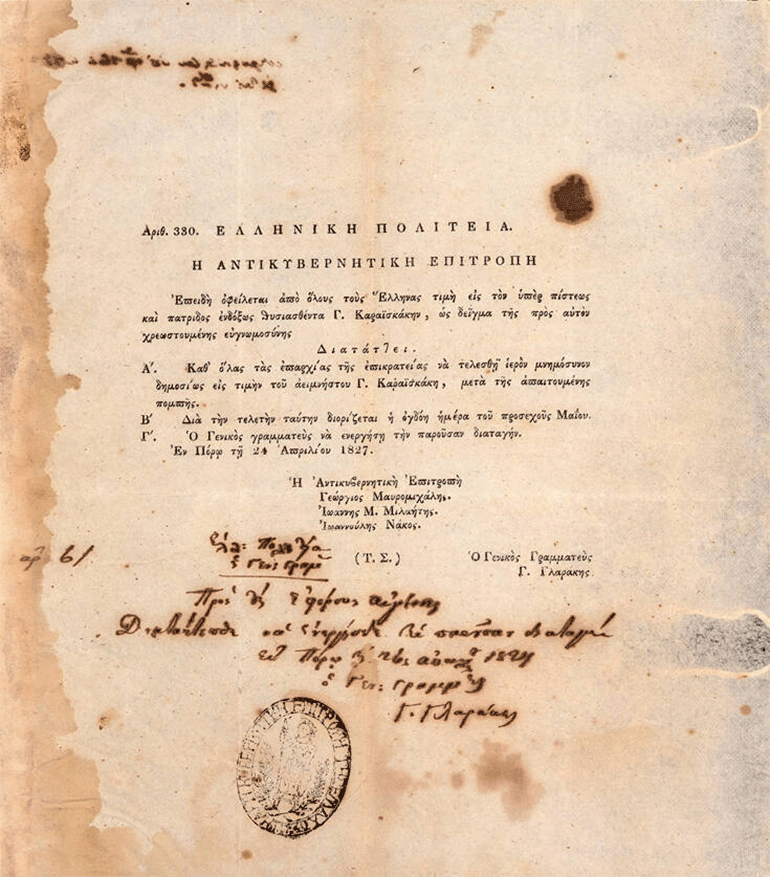 Αριθ. 330. ΕΛΛΗΝΙΚΗ ΠΟΛΙΤΕΙΑ.
Η ΑΝΤΙΚΥΒΕΡΝΗΤΙΚΗ ΕΠΙΤΡΟΠΗ
Ἐπειδὴ ὀφείλεται ἀπὸ ὅλους τοὺς Ἕλληνας τιμὴ εἰς τὸν ὑπὲρ πίστεως
καὶ πατρίδος ἐνδόξως θυσιασθέντα Γ. Καραϊσκάκην, ὡς δεῖγμα τῆς πρὸς αὐτὸν
χρεωστουμένης εὐγνωμοσύνης
Διατάττει.
Α'. Καθ' ὅλας τὰς ἐπαρχίας τῆς ἐπικρατείας νὰ τελεσθῇ ἱερὸν μνημόσυνον
δημοσίως εἰς τιμὴν τοῦ ἀειμνήστου Γ. Καραϊσκάκη, μετὰ τῆς ἀπαιτουμένης
πομπῆς.
Β' Διὰ τὴν τελετὴν ταύτην διορίζεται ἡ ὀγδόη ἡμέρα τοῦ προσεχοῦς Μαΐου.
Γ'. Ὁ Γενικὸς γραμματεὺς νὰ ἐνεργήσῃ τὴν παροῦσαν διαταγήν.
Ἐν Πόρῳ τῇ 24 Ἀπριλίου 1827.
Ἡ Ἀντικυβερνητικὴ Ἐπιτροπὴ
Γεώργιος Μαυρομιχάλης.
Ἰωάννης Μ. Μιλαήτης.
Ἰαννούλης Νάκος.
(Τ. Σ.) Ὁ Γενικὸς Γραμματεὺς
Γ. Γλαράκης.
ὁ Γεν: Γραμμ
Πρὸς
παροῦσαν διαταγὴν
ἐν Πόρῳ 1827
ὁ Γεν: Γραμμ
Γ. Γλαράκης